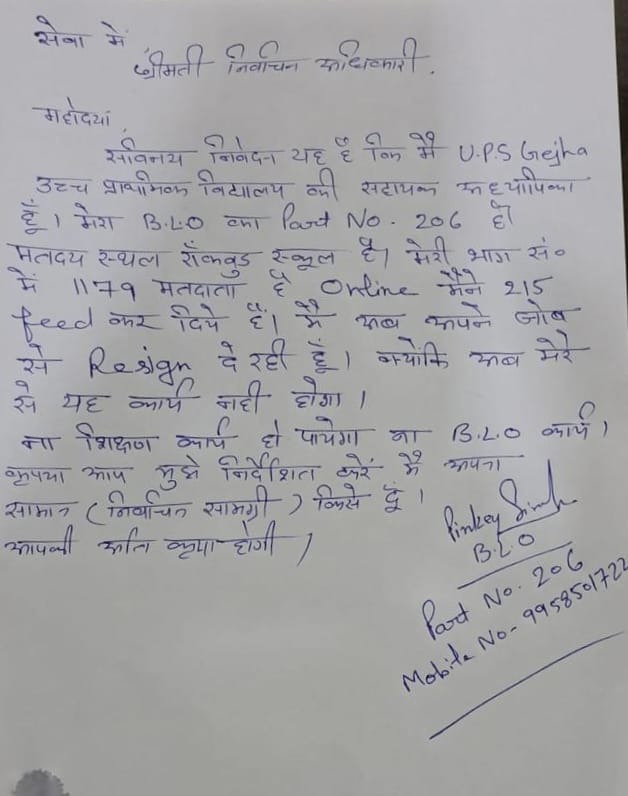 सेवा में
श्रीमती निर्वाचन अधिकारी.
महोदया,
सविनय निवेदन यह है कि मैं U.P.S Gejha
उच्च प्राथमिक विद्यालय की सहायक अध्यापिका
हूँ। मेरा B.L.O का Part No. 206 है
मतदय स्थल रॉकवुड स्कूल है। मेरी भाग सं०
में 1179 मतदाता है Online मैंने 215
feed कर दिये हैं। मैं अब अपने जोब
से Resign दे रही हूँ। क्योंकि अब मेरे
से यह कार्य नही होगा।
ना शिक्षण कार्य हो पायेगा ना B.L.O कार्य।
कृपया आप मुझे निर्देशित करें मैं अपना
सामान (निर्वाचन सामग्री) किसे दूँ।
आपकी अति कृपा होगी।
Pinkey Singh
B.L.O
Part No. 206
Mobile No- 9958501722